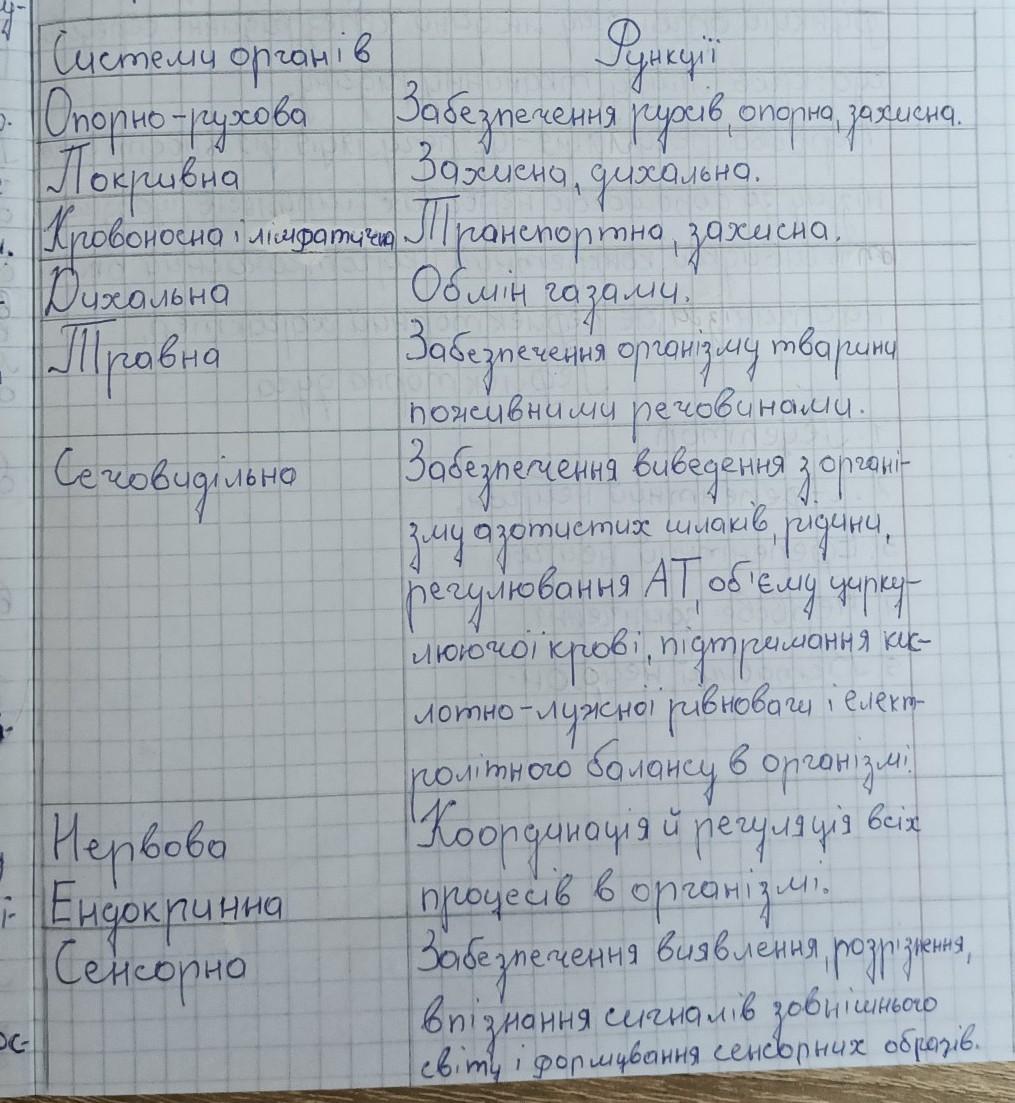 Системи органів Функції
Опорно-рухова Забезпечення рухів, опорна, захисна.
Покривна Захисна, дихальна.
Кровоносна і лімфатична Транспортна, захисна.
Дихальна Обмін газами.
Травна Забезпечення організму тварини
поживними речовинами.
Сечовидільна Забезпечення виведення з органі-
зму азотистих шлаків, рідини,
регулювання АТ, об'єму цирку-
люючої крові, підтримання кис-
лотно-лужної рівноваги і елект-
ролітного балансу в організмі.
Нервова Координація й регуляція всіх
Ендокринна процесів в організмі.
Сенсорна Забезпечення виявлення, розрізнення,
впізнання сигналів зовнішнього
світу і формування сенсорних образів.